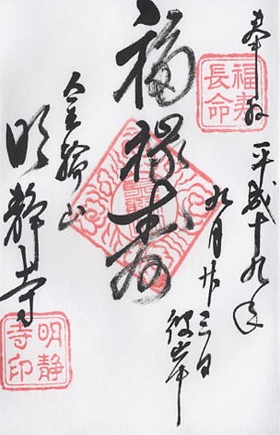 奉拝
平成十九年
九月廿三日
彼岸
福寿
長命
福禄寿
金輪山
明静寺
明静
寺印